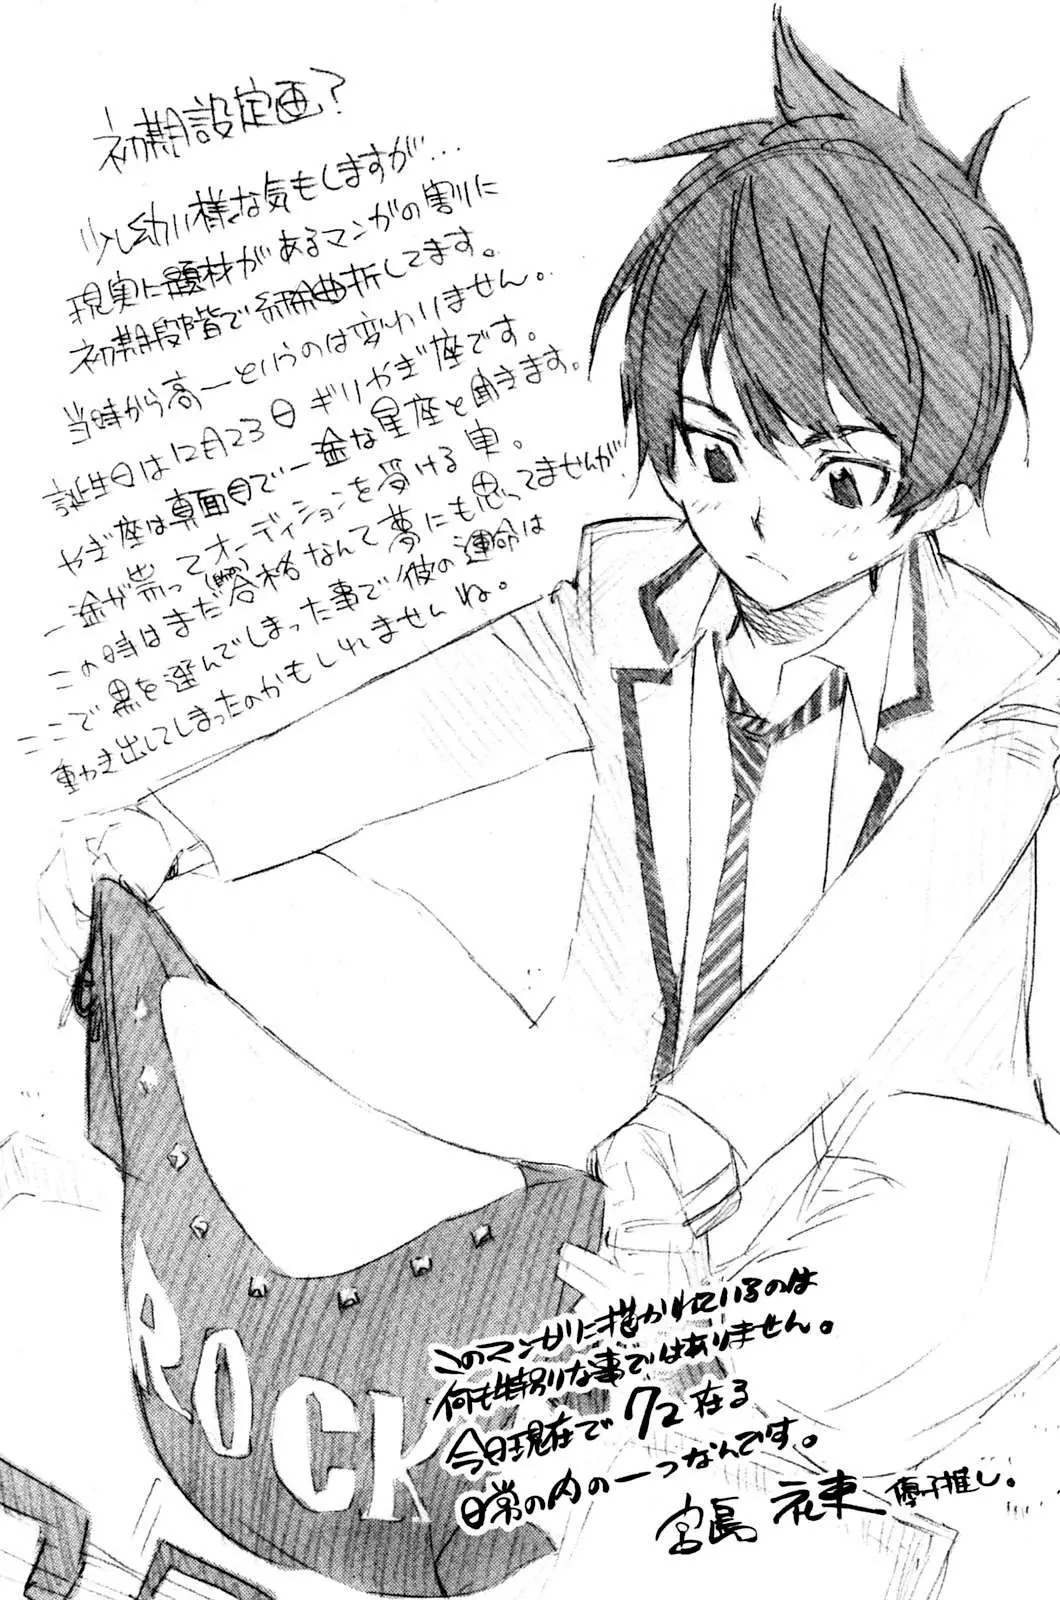 初期設定画?
少し幼い様な気もしますが…
現実に題材があるマンガの割りに
初期段階で紆余曲折してます。
当時から高一というのは変わりません。
誕生日は12月23日ギリやぎ座です。
やぎ座は真面目で一途な星座と聞きます。
一途が祟ってオーディションを受ける事。
この時はまだ合格なんて夢にも思ってませんが
ここで黒を選んでしまった事で彼の運命は
動き出してしまったのかもしれませんね。
ROCK
このマンガに描かれているのは
何も特別な事ではありません。
今日現在で72在る
日常の内の一つなんです。
宮島 礼吏 優子推し。